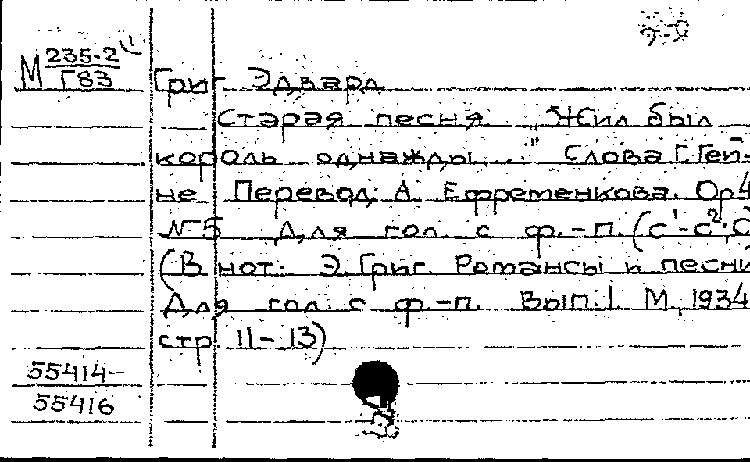 М 235.2
Г83
Григ Эдвард
Старая песня „Жил был
король однажды..." Слова Г. Гей-
не Перевод А. Ефременкова. Op 4
№5 Для гол. с ф.-п. (c¹-c²,
(В нот: Э. Григ Романсы и песни
Для гол. с ф.-п. Вып. I. М, 1934
стр 11-13)
55414-
55416